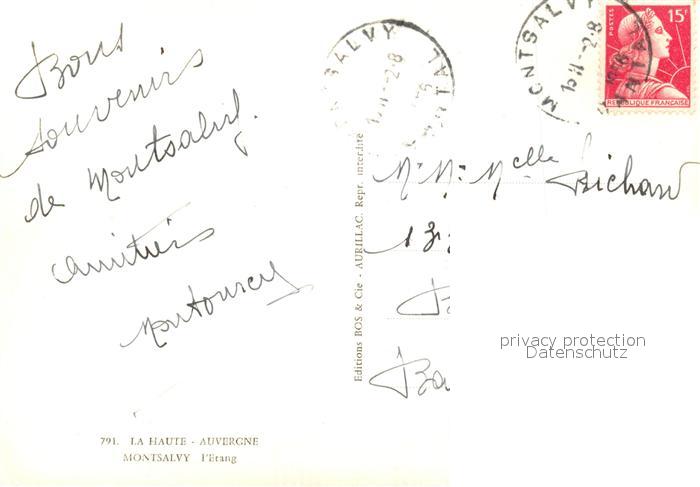 Bons
souvenirs
de Montsalvy.
Amitiés
791. LA HAUTE - AUVERGNE
MONTSALVY l'Etang
Editions BOS & Cie - AURILLAC. Repr. interdite
MONTSALVY
15H -2-8
MONTSALVY
15H -2-8
POSTES
15F
REPUBLIQUE FRANÇAISE
Mr Me Melle Bichard
13
Ba
privacy protection
Datenschutz